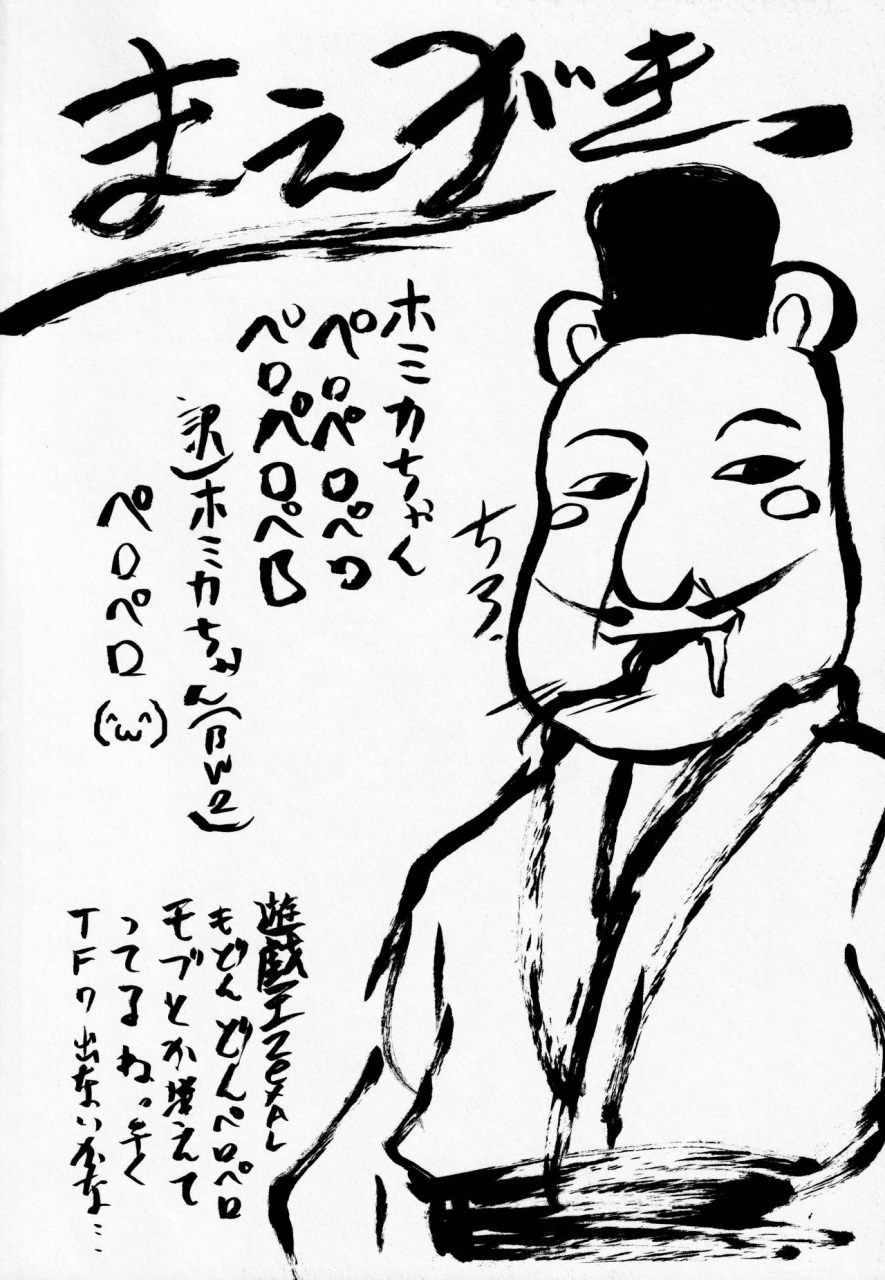 まえがきっ
ホミカちゃん
ペロペロペロ
ペロペロペロ
訳)ホミカちゃん(BW2)
ペロペロ(^ω^)
ちろ
遊戯王ZEXAL
もどんどんペロペロ
モブとか増えて
ってるねっ早く
TF7出ないかな…